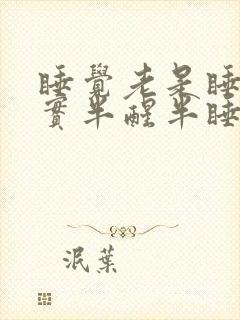 睡覺老是睡
實半醒半睡
泯葉